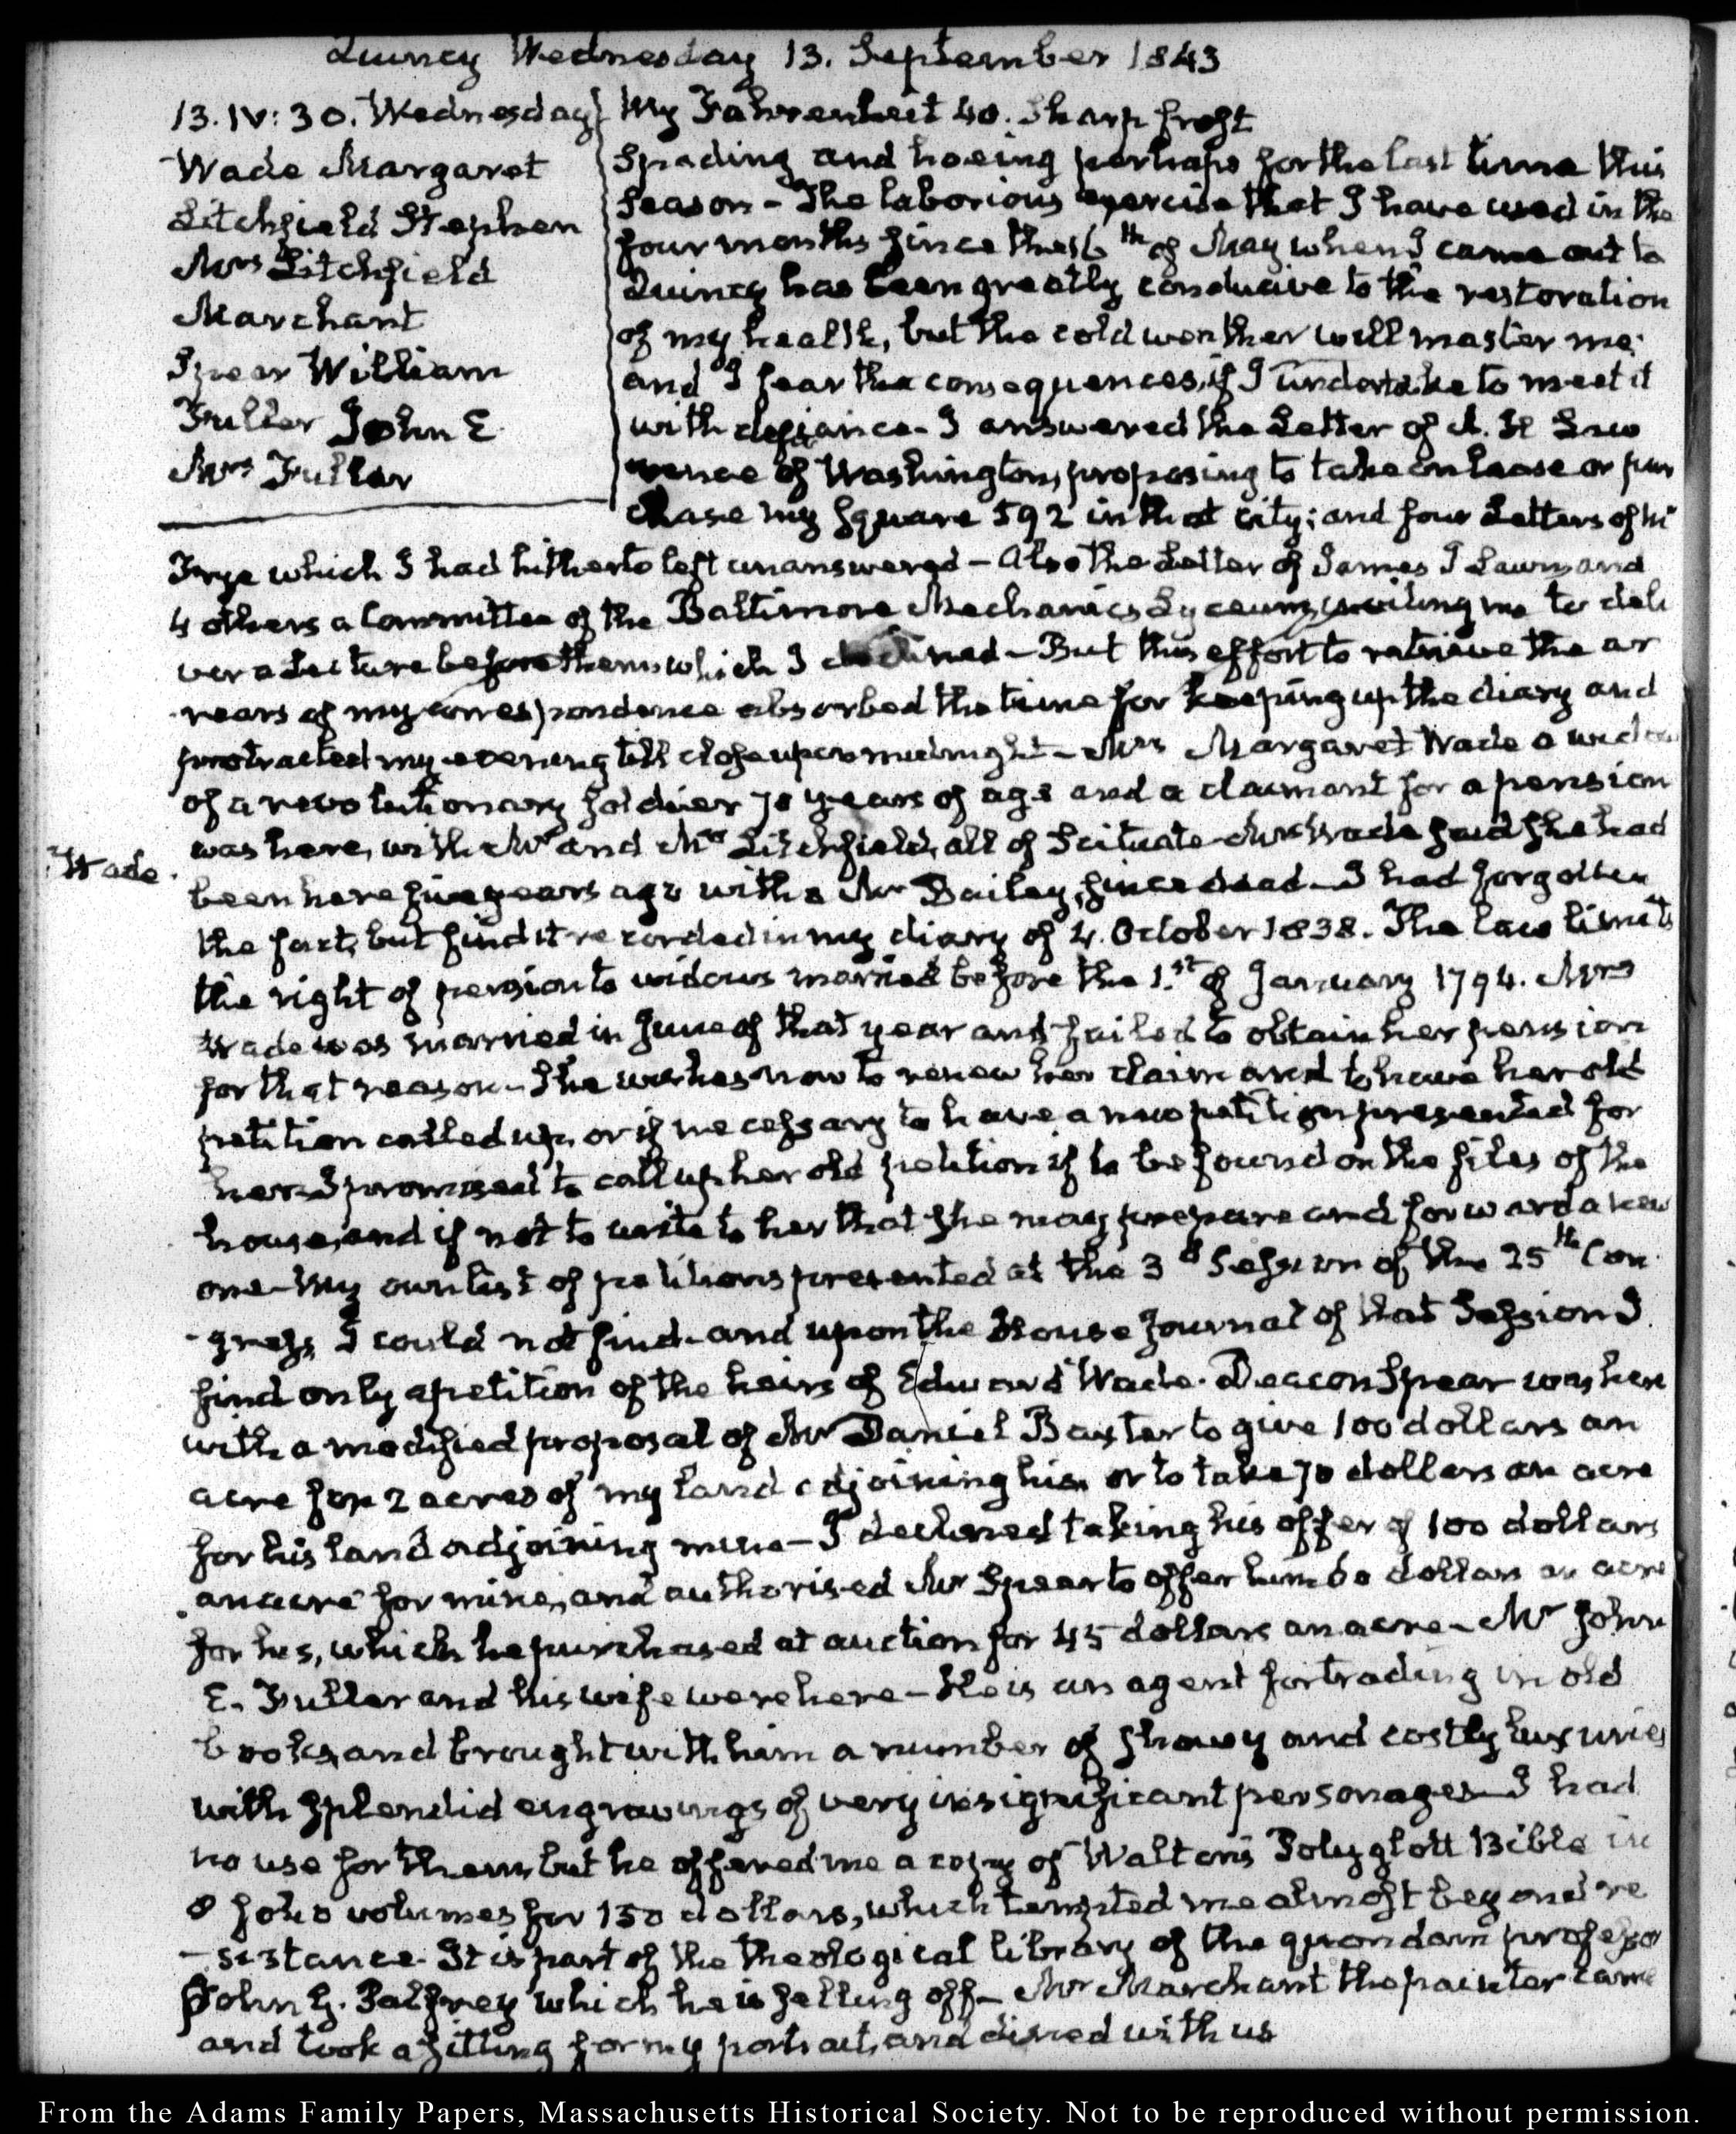 Quincy Wednesday 13. September 1843
13. IV: 30. Wednesday
Wade Margaret
Litchfield Stephen
Mrs Litchfield
Marchant
Spear William
Fuller John E
Mrs Fuller
My Fahrenheit 40. Sharp frost
Spading and hoeing perhaps for the last time this
season - The laborious exercise that I have used in the
four months since the 6th of May when I came out to
Quincy has been greatly conducive to the restoration
of my health, but the cold weather will master me;
and I fear the consequences, if I undertake to meet it
with defiance - I answered the Letter of A. H Law
rence of Washington, proposing to take on lease or pur
chase my Square 592 in that city; and four Letters of N
Frye which I had hitherto left unanswered - Also the Letter of James J and
4 others a Committee of the Baltimore Mechanics Lyceum, inviting me to deli
ver a Lecture before them, which I declined - But this effort to retrieve the ar
rears of my correspondence absorbed the time for keeping up the diary and
protracted my evening till close upon midnight - Mrs Margaret Wade a widow
of a revolutionary soldier 70 years of age and a claimant for a pension
was here, with Mr and Mrs Litchfield, all of Scituate - Mrs Wade said she had
Wade.
been here five years ago with a Mr Bailey, since dead - I had forgotten
the fact, but find it recorded in my diary of 4. October 1838. The law limits
the right of pension to widows married before the 1.st of January 1794. Mrs
Wade was married in June of that year and failed to obtain her pension
for that reason - She wishes now to renew her claim and to have her old
petition called up, or if necessary to have a new petition presented for
her - I promised to call up her old petition if to be found on the files of the
house, and if not to write to her that she may prepare and forward a new
one - My own list of petitions presented at the 3d Session of the 25th Con
-gress, I could not find - and upon the House Journal of that Session I
find only a petition of the heirs of Edward Wade. Deacon Spear was here
with a modified proposal of Mr Daniel Baxter to give 100 dollars an
acre for 2 acres of my land adjoining his or to take 70 dollars an acre
for his land adjoining mine - I declined taking his offer of 100 dollars
an acre for mine, and authorised Mr Spear to offer him 60 dollars an acre
for his, which he purchased at auction for 45 dollars an acre - Mr John
E. Fuller and his wife were here - He is an agent for trading in old
books, and brought with him a number of showy and costly luxuries
with splendid engravings of very insignificant personages - I had
no use for them, but he offered me a copy of Walton's Polyglott Bible in
8 folio volumes for 150 dollars, which tempted me almost beyond re
-sistance. It is part of the theological library of the quondam professor
John G. Palfrey which he is selling off - Mr Marchant the painter came
and took a sitting for my portrait, and dined with us
From the Adams Family Papers, Massachusetts Historical Society. Not to be reproduced without permission.